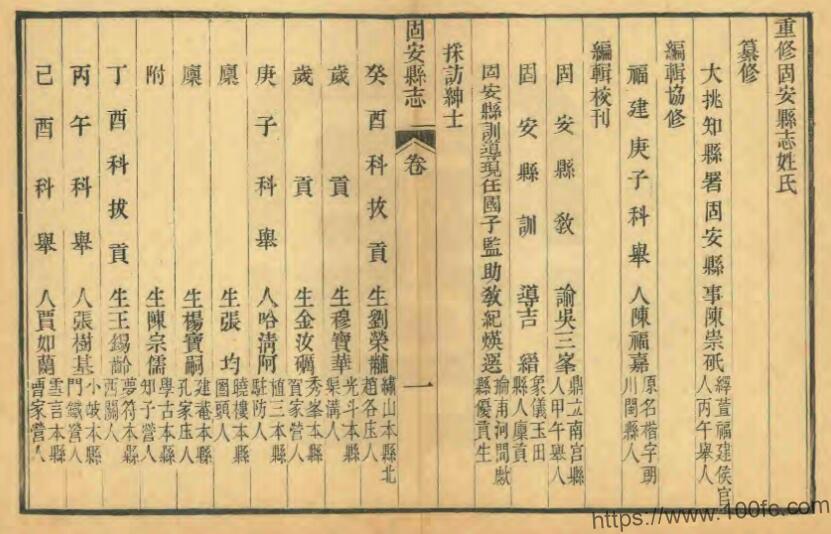 重修固安縣志姓氏
纂修
大挑知縣署固安縣事陳崇砥 繹萱福建侯官人丙午舉人
編輯協修
福建庚子科舉人陳福嘉 原名楷字朗川閩縣人
編輯校刊
固安縣教諭吳三峯 鼎立南宮縣人甲午舉人
固安縣訓導吉縉 象儀玉田縣人廩貢
固安縣訓導現任國子監助教紀煐選 瑜甫河間獻縣優貢生
採訪紳士
固安縣志 卷 一
癸酉科拔貢生劉榮黼 繡山本縣北趙各庄人
歲貢生穆寶華 光斗本縣渠溝人
歲貢生金汝礪 秀峯本縣賀家營人
庚子科舉人哈清阿 植三本縣駐防人
廩生張均 曉樓本縣圈頭人
廩生楊寶嗣 建菴本縣孔家庄人
附生陳宗儒 學古本縣知子營人
丁酉科拔貢生王錫齡 夢符本縣西關人
丙午科舉人張樹基 小坡本縣門鐵營人
己酉科舉人賈如蘭 雲言本縣曹家營人
https://www.100fe.com